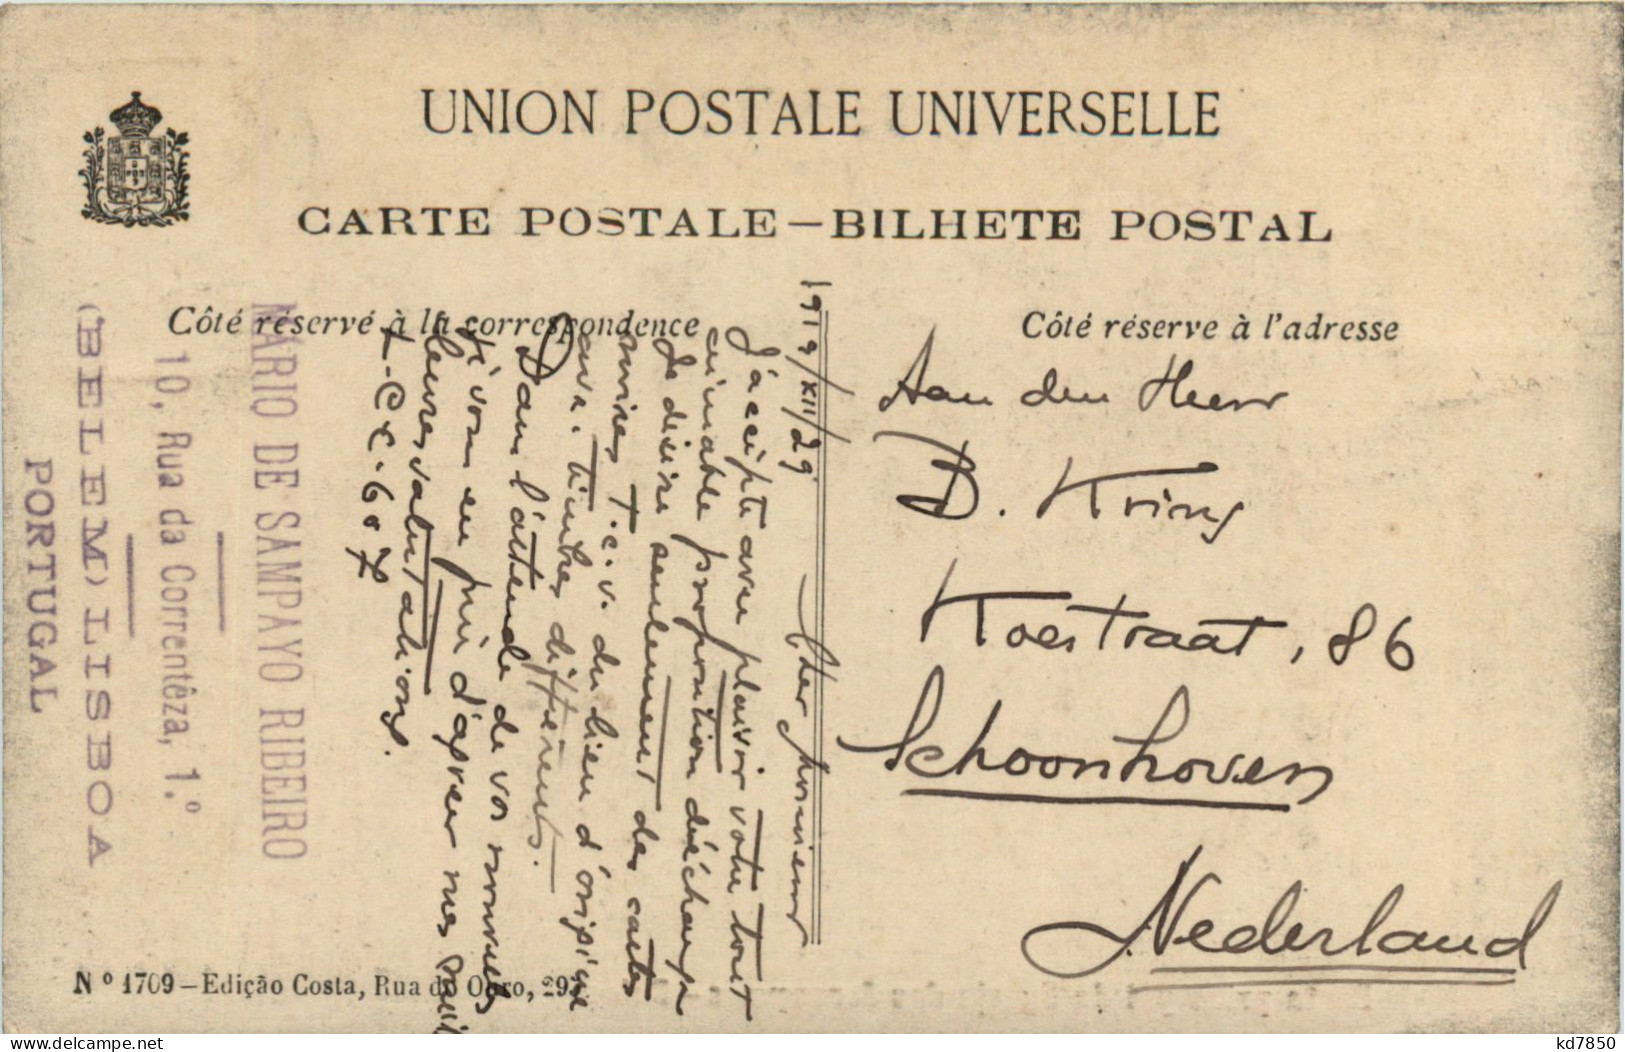 UNION POSTALE UNIVERSELLE
CARTE POSTALE—BILHETE POSTAL
Côté réservé à la correspondence
Côté réserve à l'adresse
MÁRIO DE SAMPAYO RIBEIRO
10, Rua da Correntêza, 1.º
(BELEM) LISBOA
PORTUGAL
1919/XII/29
Cher Monsieur
J'accepte avec plaisir votre tout
aimable proposition d'échange
Je désire seulement des cartes
vues, T.c.v. du lieu d'origine
avec timbres différents.
Dans l'attende de vos nouvelles
je vous en prie d'agréer mes
meilleures salutations.
C.C. 607
Aan den Heer
D. Kring
Koestraat, 86
Schoonhoven
Nederland
Nº 1709—Edição Costa, Rua do Ouro, 295
kd7850